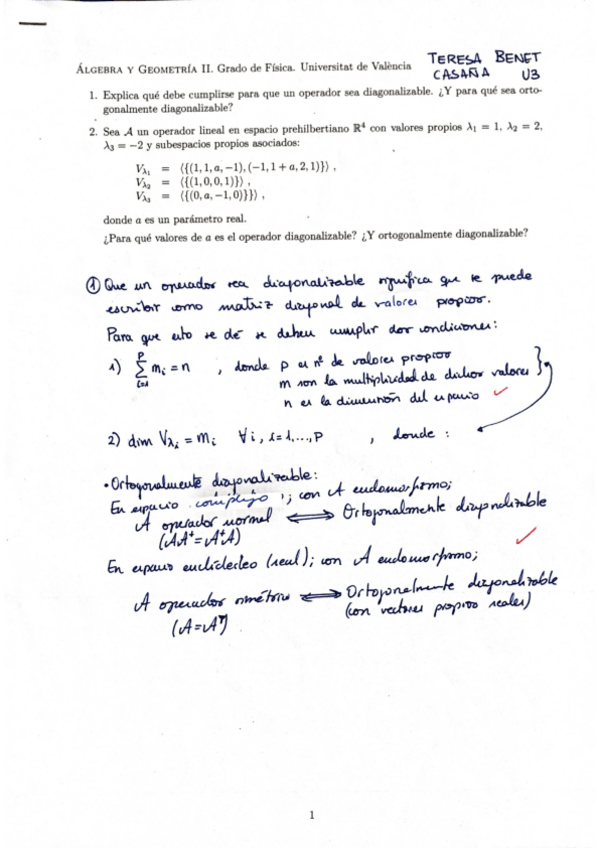 TERESA BENET
ÁLGEBRA Y GEOMETRÍA II. Grado de Física. Universitat de València CASAÑA U3
1. Explica qué debe cumplirse para que un operador sea diagonalizable. ¿Y para qué sea orto-
gonalmente diagonalizable?
2. Sea A un operador lineal en espacio prehilbertiano ℝ⁴ con valores propios λ₁ = 1, λ₂ = 2,
λ₃ = −2 y subespacios propios asociados:
V_λ₁ = ⟨{(1, 1, a, −1), (−1, 1 + a, 2, 1)}⟩ ,
V_λ₂ = ⟨{(1, 0, 0, 1)}⟩ ,
V_λ₃ = ⟨{(0, a, −1, 0)}}⟩ ,
donde a es un parámetro real.
¿Para qué valores de a es el operador diagonalizable? ¿Y ortogonalmente diagonalizable?
① Que un operador sea diagonalizable significa que se puede
escribir como matriz diagonal de valores propios.
Para que esto se dé se deben cumplir dos condiciones:
1) Σ_{i=1}^{p} mᵢ = n , donde p es nº de valores propios
m son la multiplicidad de dichos valores
n es la dimensión del espacio
2) dim V_λᵢ = mᵢ ∀i, i=1,...,p , donde :
• Ortogonalmente diagonalizable:
En espacio complejo ; con A endomorfismo;
A operador normal ⟺ Ortogonalmente diagonalizable
(AA⁺=A⁺A)
En espacio euclídeo (real); con A endomorfismo;
A operador simétrico ⟺ Ortogonalmente diagonalizable
(A=Aᵀ) (con vectores propios reales)
1